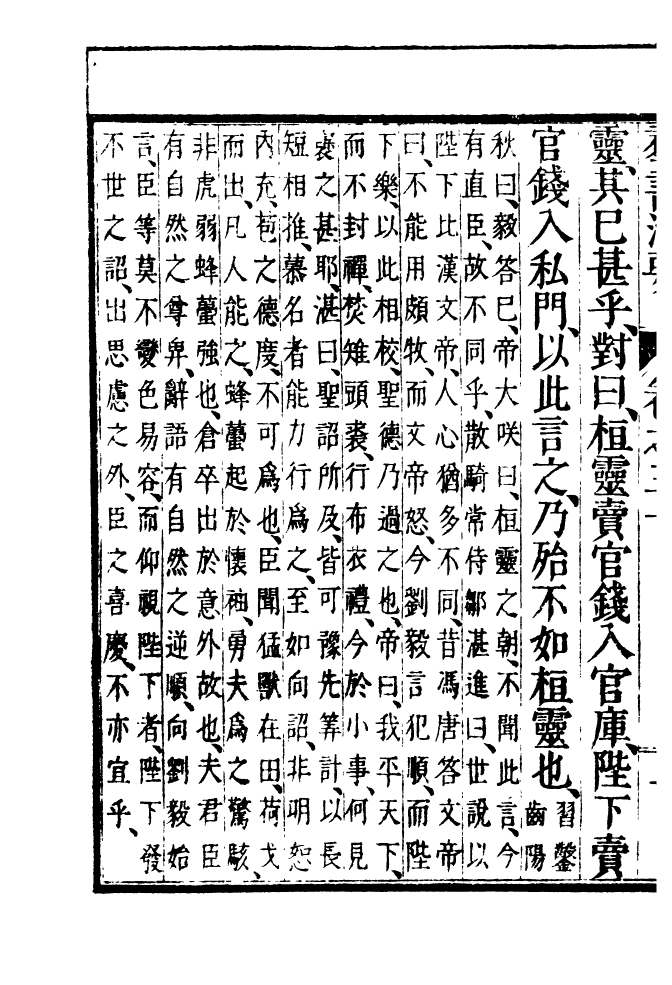 羣書治要 卷之三十
靈其已甚乎、對曰、桓靈賣官錢入官庫、陛下賣
官錢入私門、以此言之、乃殆不如桓靈也、習鑿
齒陽
秋曰、毅答已、帝大咲曰、桓靈之朝、不聞此言、今
有直臣、故不同乎、散騎常侍鄒湛進曰、世說以
陛下比漢文帝、人心猶多不同、昔馮唐答文帝
曰、不能用頗牧、而文帝怒、今劉毅言犯順、而陛
下樂、以此相校、聖德乃過之也、帝曰、我平天下、
而不封禪、焚雉頭裘、行布衣禮、今於小事、何見
褒之甚耶、湛曰、聖詔所及、皆可豫先筭計、以長
短相推、慕名者能力行爲之、至如向詔、非明恕
內充、苞之德度、不可爲也、臣聞猛獸在田、荷戈
而出、凡人能之、蜂蠆起於懷袖、勇夫爲之驚駭、
非虎弱蜂蠆強也、倉卒出於意外故也、夫君臣
有自然之尊卑、辭語有自然之逆順、向劉毅始
言、臣等莫不變色易容、而仰視陛下者、陛下發
不世之詔、出思慮之外、臣之喜慶、不亦宜乎、